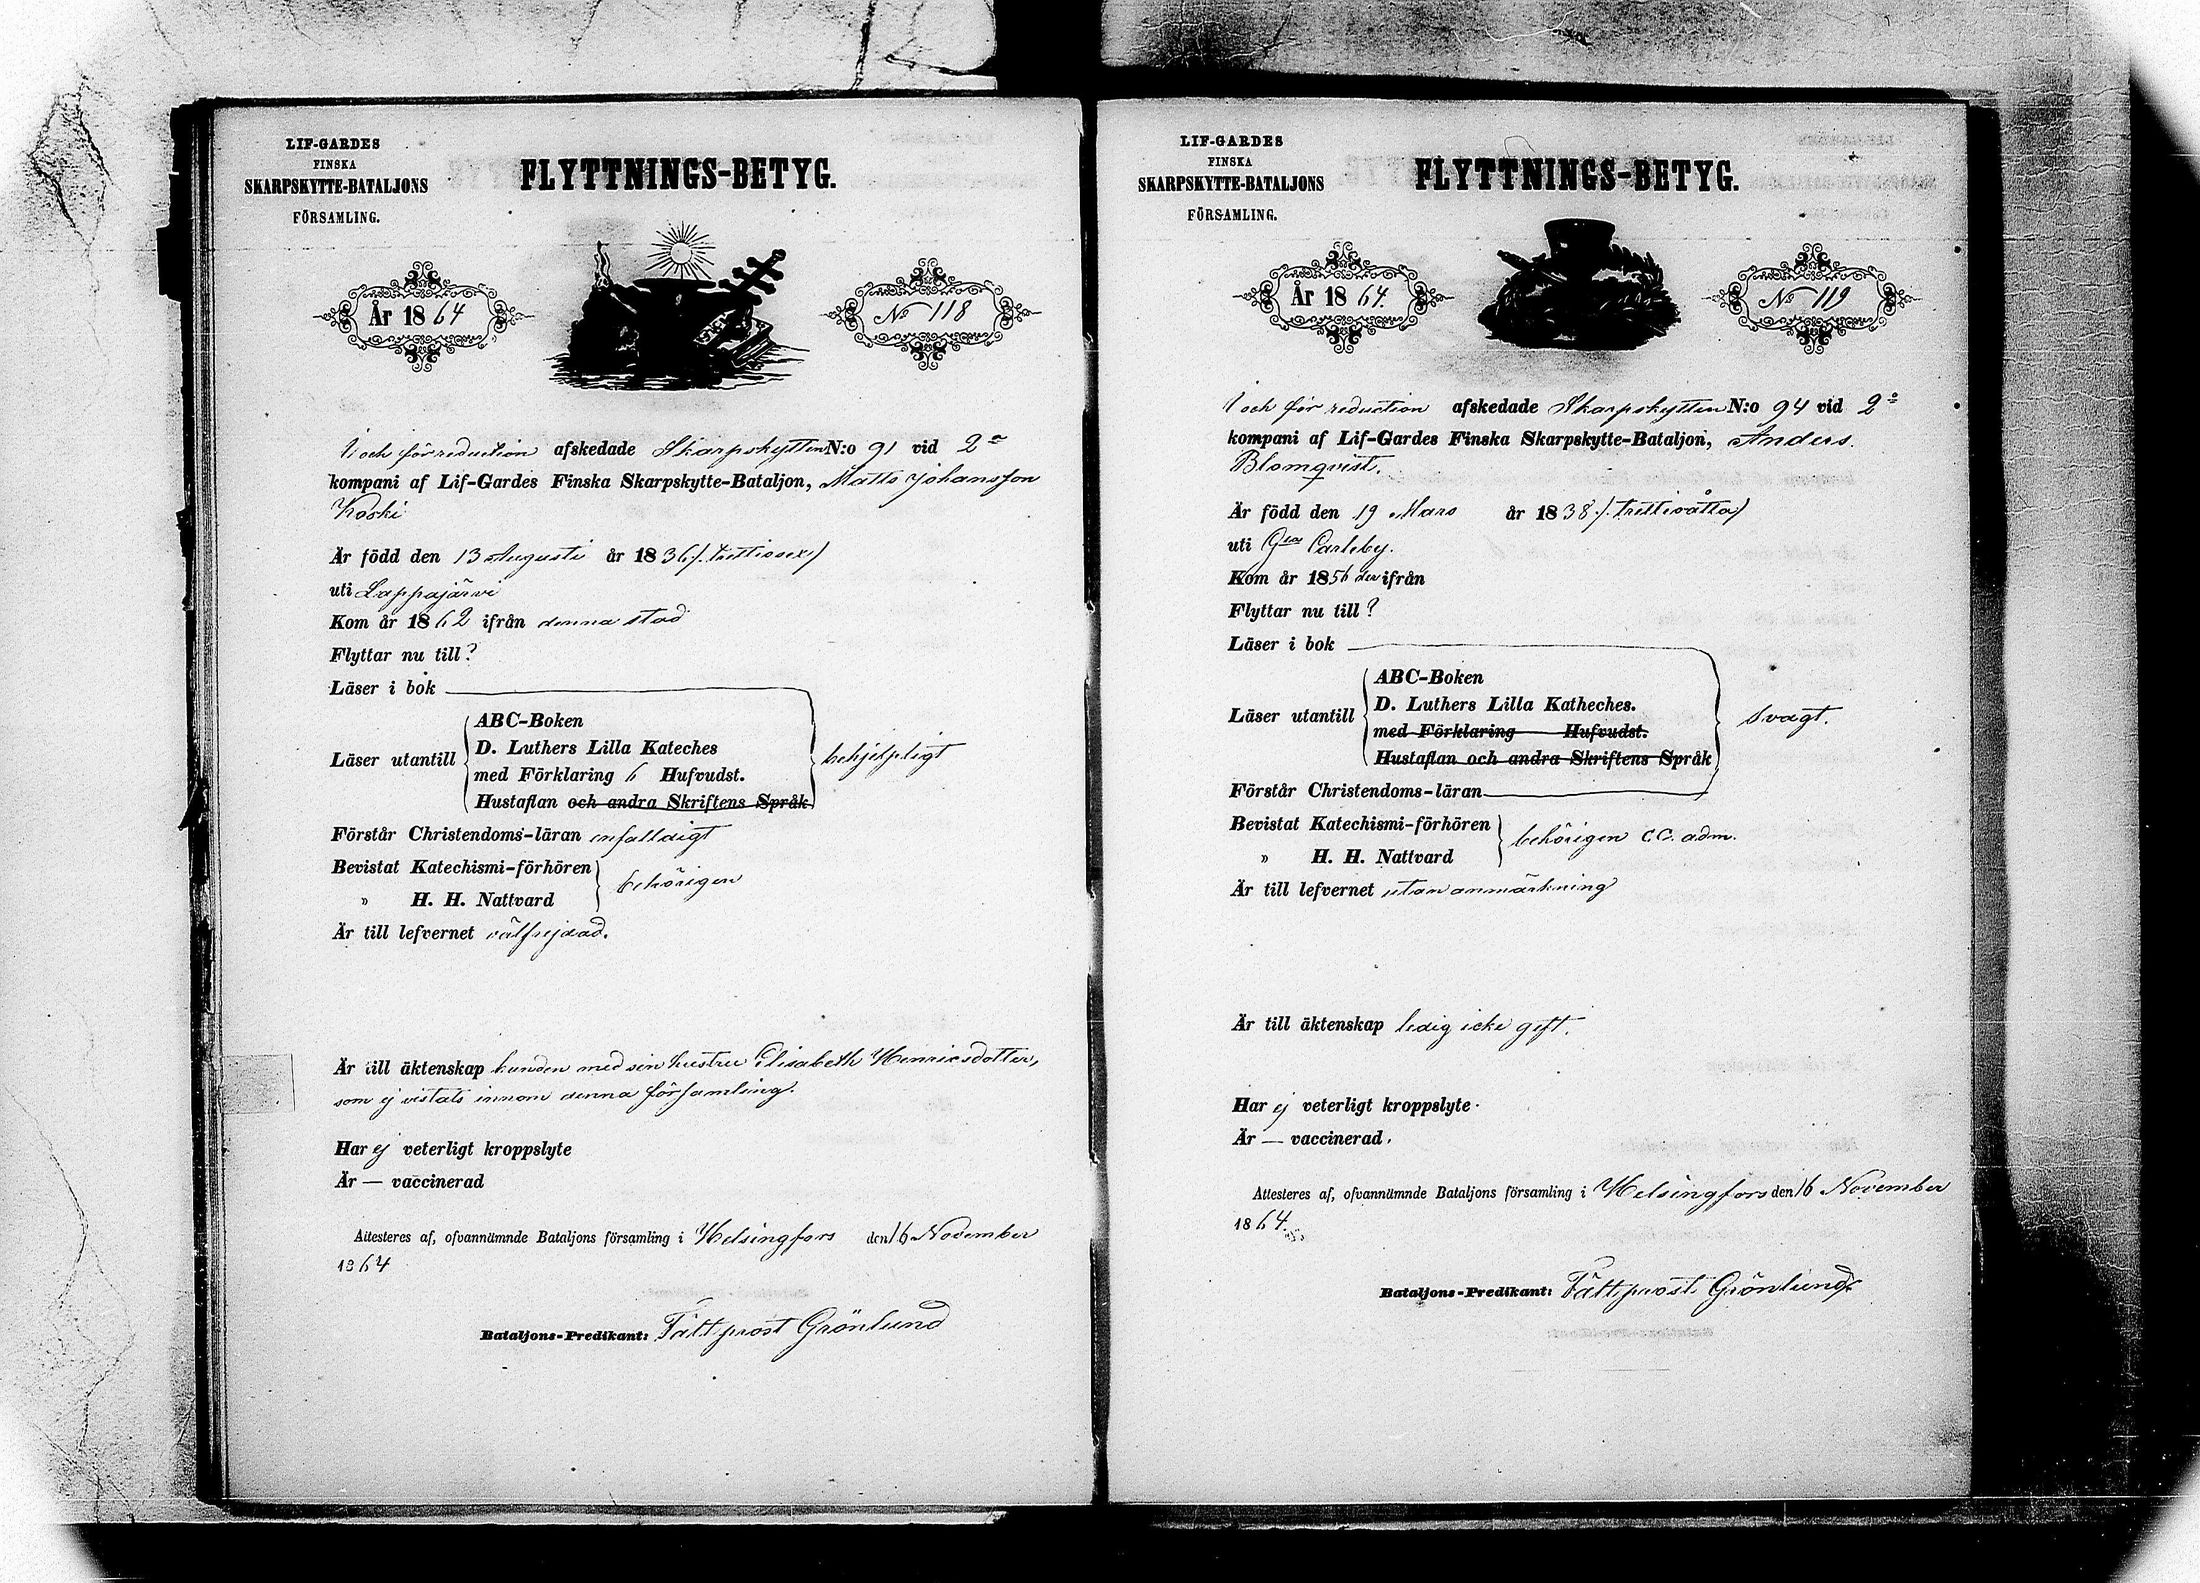 LIF-GARDES
FINSKA
SKARPSKYTTE-BATALJONS
FÖRSAMLING.
FLYTTNINGS-BETYG.
År 1864
No 118
I och för reduction afskedade Skarpskytten N:o 91 vid 2a
kompani af Lif-Gardes Finska Skarpskytte-Bataljon, Matts Johansson
Koski
Är född den 13 Augusti år 1836 /: trettiosex /
uti Lappajärvi
Kom år 1862 ifrån denna stad
Flyttar nu till ?
Läser i bok
Läser utantill
ABC-Boken
D. Luthers Lilla Kateches
med Förklaring 6 Hufvudst.
Hustaflan och andra Skriftens Språk
behjelpligt
Förstår Christendoms-läran enfalldigt
Bevistat Katechismi-förhören
» H. H. Nattvard
behörigen
Är till lefvernet välfrejdad.
Är till äktenskap bunden med sin hustru Elisabeth Henricsdotter,
som ej vistats innom denna församling.
Har ej veterligt kroppslyte
Är — vaccinerad
Attesteres af, ofvannämnde Bataljons församling i Helsingfors den 16 November
1864
Bataljons-Predikant: Fältprost Grönlund
LIF-GARDES
FINSKA
SKARPSKYTTE-BATALJONS
FÖRSAMLING.
FLYTTNINGS-BETYG.
År 1864.
No 119
I och för reduction afskedade Skarpskytten N:o 94 vid 2a
kompani af Lif-Gardes Finska Skarpskytte-Bataljon, Anders
Blomqvist.
Är född den 19 Mars år 1838 /: trettioåtta /
uti Gla Carleby.
Kom år 1856 der ifrån
Flyttar nu till ?
Läser i bok
Läser utantill
ABC-Boken
D. Luthers Lilla Katheches.
med Förklaring Hufvudst.
Hustaflan och andra Skriftens Språk
svagt.
Förstår Christendoms-läran
Bevistat Katechismi-förhören
» H. H. Nattvard
behörigen CC. adm.
Är till lefvernet utan anmärkning
Är till äktenskap ledig icke gift.
Har ej veterligt kroppslyte.
Är — vaccinerad.
Attesteres af, ofvannämnde Bataljons församling i Helsingfors den 16 November
1864.
Bataljons-Predikant: Fältprost Grönlund